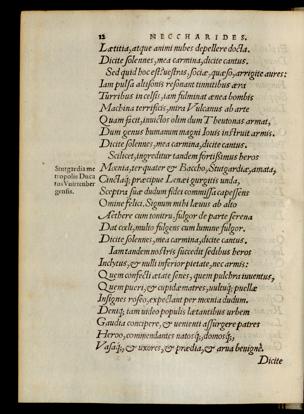 12 NECCHARIDES.
Lætitia, atque animi nubes depellere docta.
Dicite solennes, mea carmina, dicite cantus.
Sed quid hoc est? vestras, sociæ, quæso, arrigite aures:
Iam pulsa altisonis resonant tinnitibus æra
Turribus in celsis, iam fulminat ænea bombis
Machina terrificis, mira Vulcanus ab arte
Quam facit, inuictos olim dum Theutonas armat,
Dum genus humanum magni Iouis instruit armis.
Dicite solennes, mea carmina, dicite cantus.
Scilicet, ingreditur tandem fortißimus heros
Mœnia, ter quater & Baccho, Stutgardia, amata,
Stutgardia me
tropolis Duca
tus Vuirtenber
gensis.
Cinctaq́; præcipue Lenæi gurgitis unda,
Sceptra suæ dudum fidei commissa capessens
Omine felici. Signum mihi læuus ab alto
Aethere cum tonitru, fulgor de parte serena
Dat cœli, multo fulgens cum lumine fulgor.
Dicite solennes, mea carmina, dicite cantus.
Iam tandem nostris succedit sedibus heros
Inclytus, & nulli inferior pietate, nec armis:
Quem confecti ætate senes, quem pulchra iuuentus,
Quem pueri, & cupidæ matres, uultuq́; puellæ
Insignes roseo, expectant per mœnia dudum.
Deniq; tam uideo populis lætantibus urbem
Gaudia concipere, & uenienti assurgere patres
Heroo, commendantes natosq́;, domosq́;,
Vasaq́;, & uxores, & prædia, & arua benigne.
Dicite